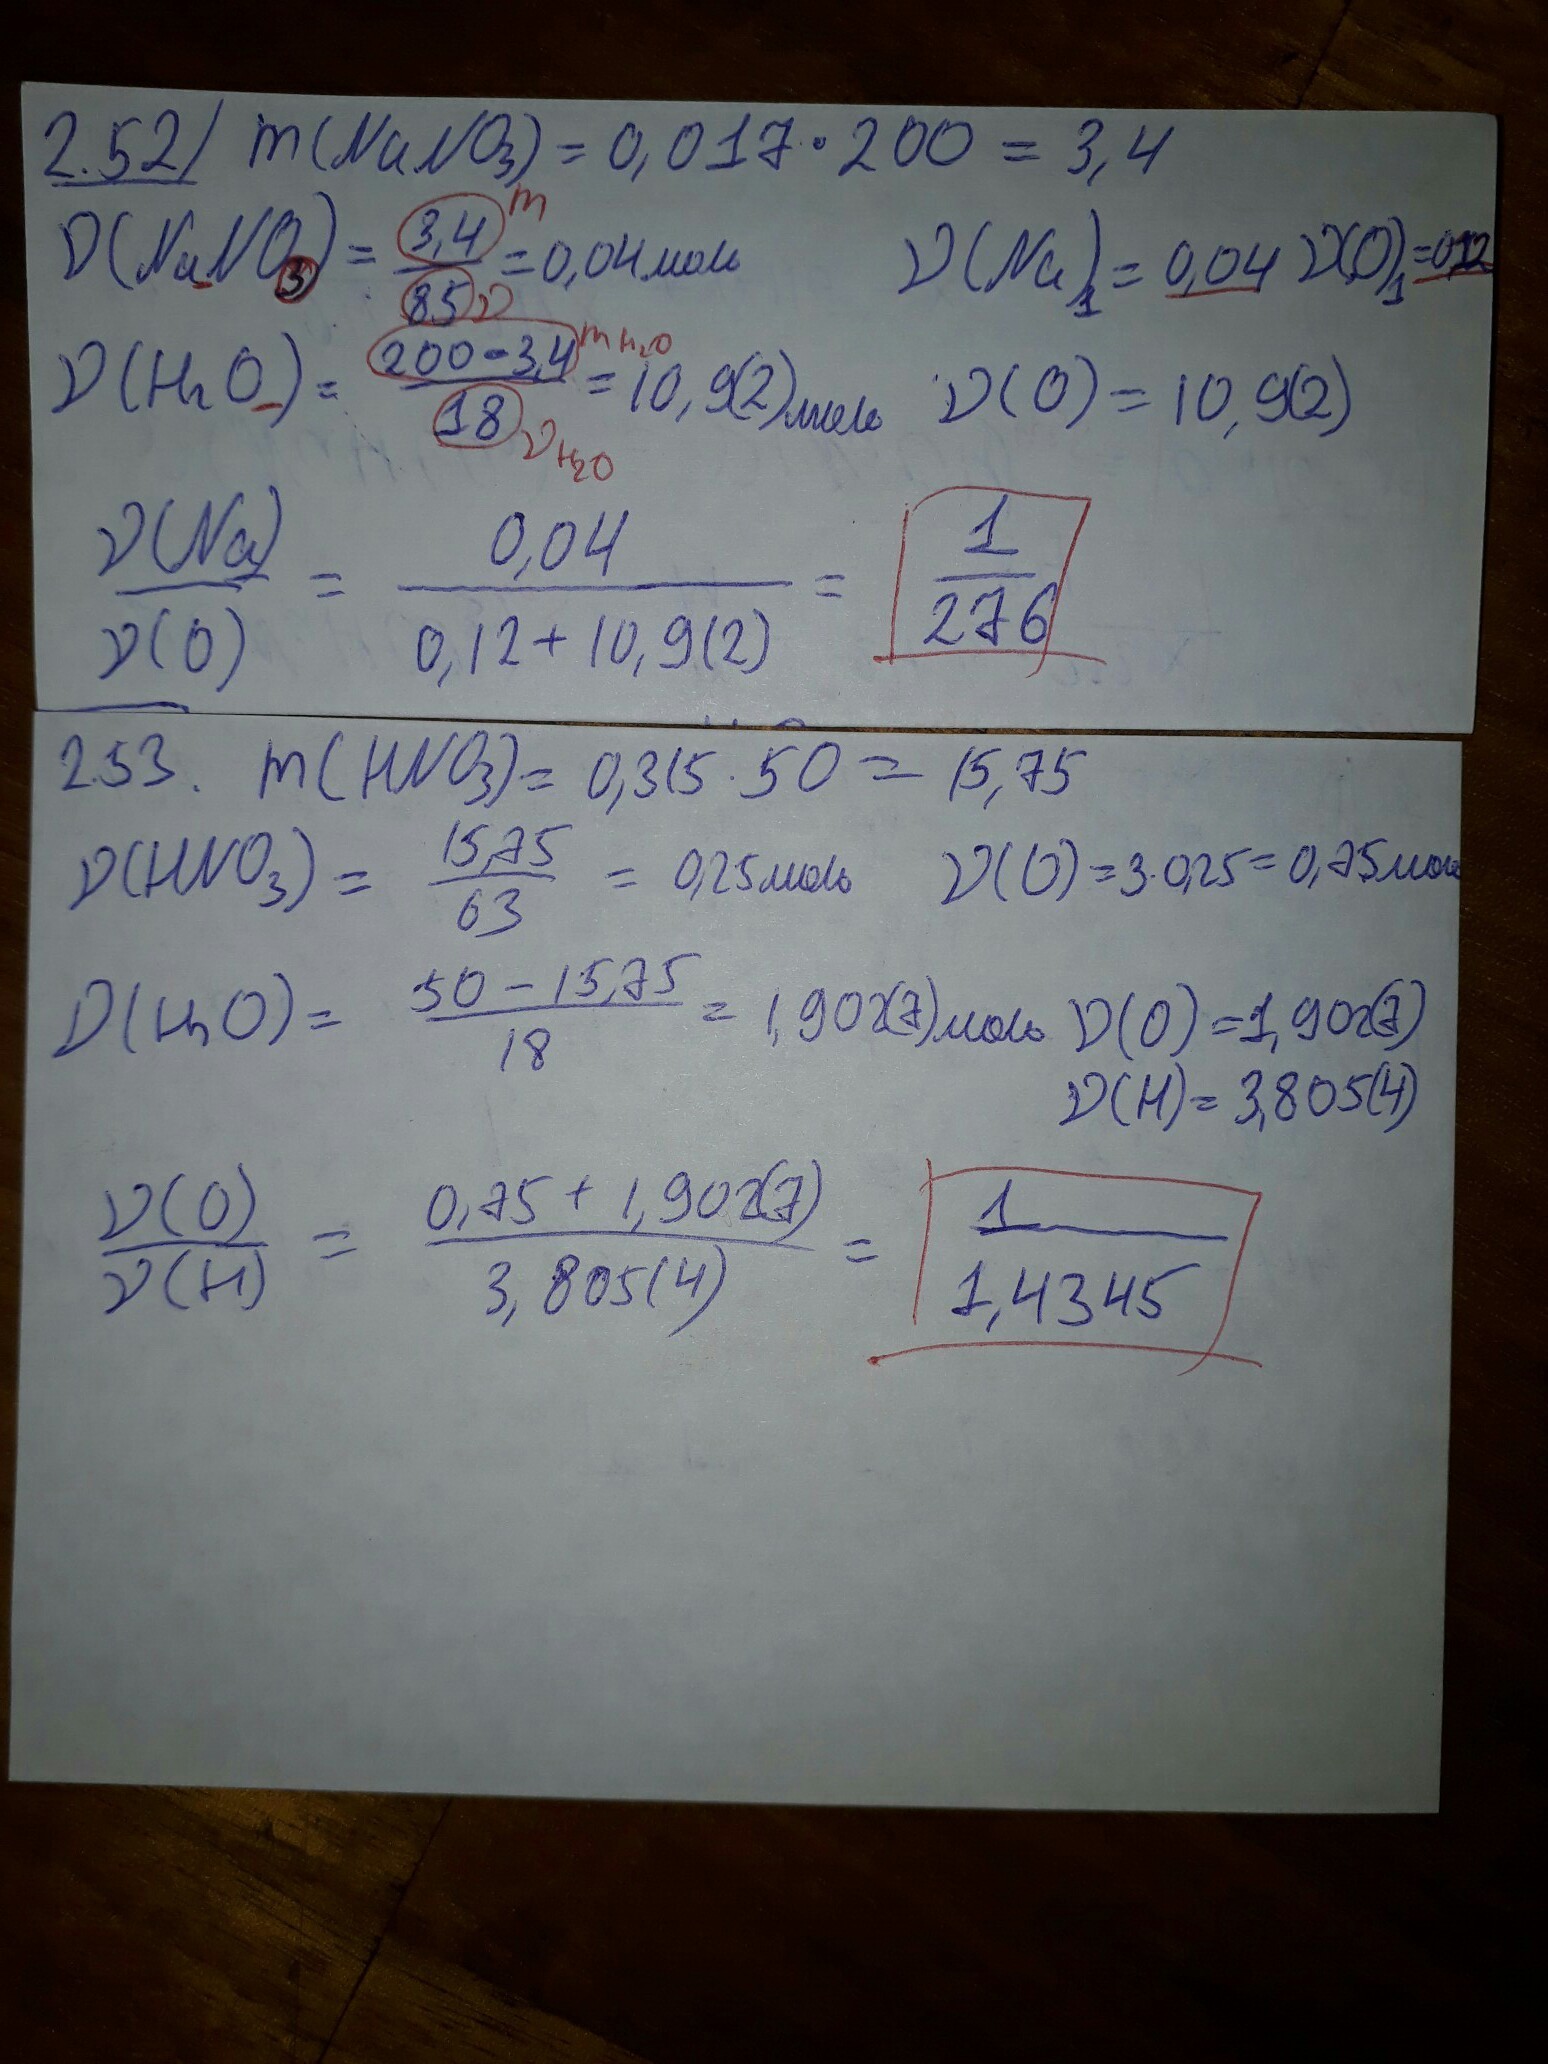 2.52/ m(NaNO3) = 0,017 · 200 = 3,4
ν(NaNO3) = 3,4 m / 85 ν = 0,04 моль ν(Na)1 = 0,04 ν(O)1 = 0,12
ν(H2O) = 200 - 3,4 mH2O / 18 νH2O = 10,9(2) моль ν(O) = 10,9(2)
ν(Na) / ν(O) = 0,04 / 0,12 + 10,9(2) = 1 / 276
2.53. m(HNO3) = 0,315 · 50 = 15,75
ν(HNO3) = 15,75 / 63 = 0,25 моль ν(O) = 3·0,25 = 0,75 моль
ν(H2O) = 50 - 15,75 / 18 = 1,902(7) моль ν(O) = 1,902(7)
ν(H) = 3,805(4)
ν(O) / ν(H) = 0,75 + 1,902(7) / 3,805(4) = 1 / 1,4345